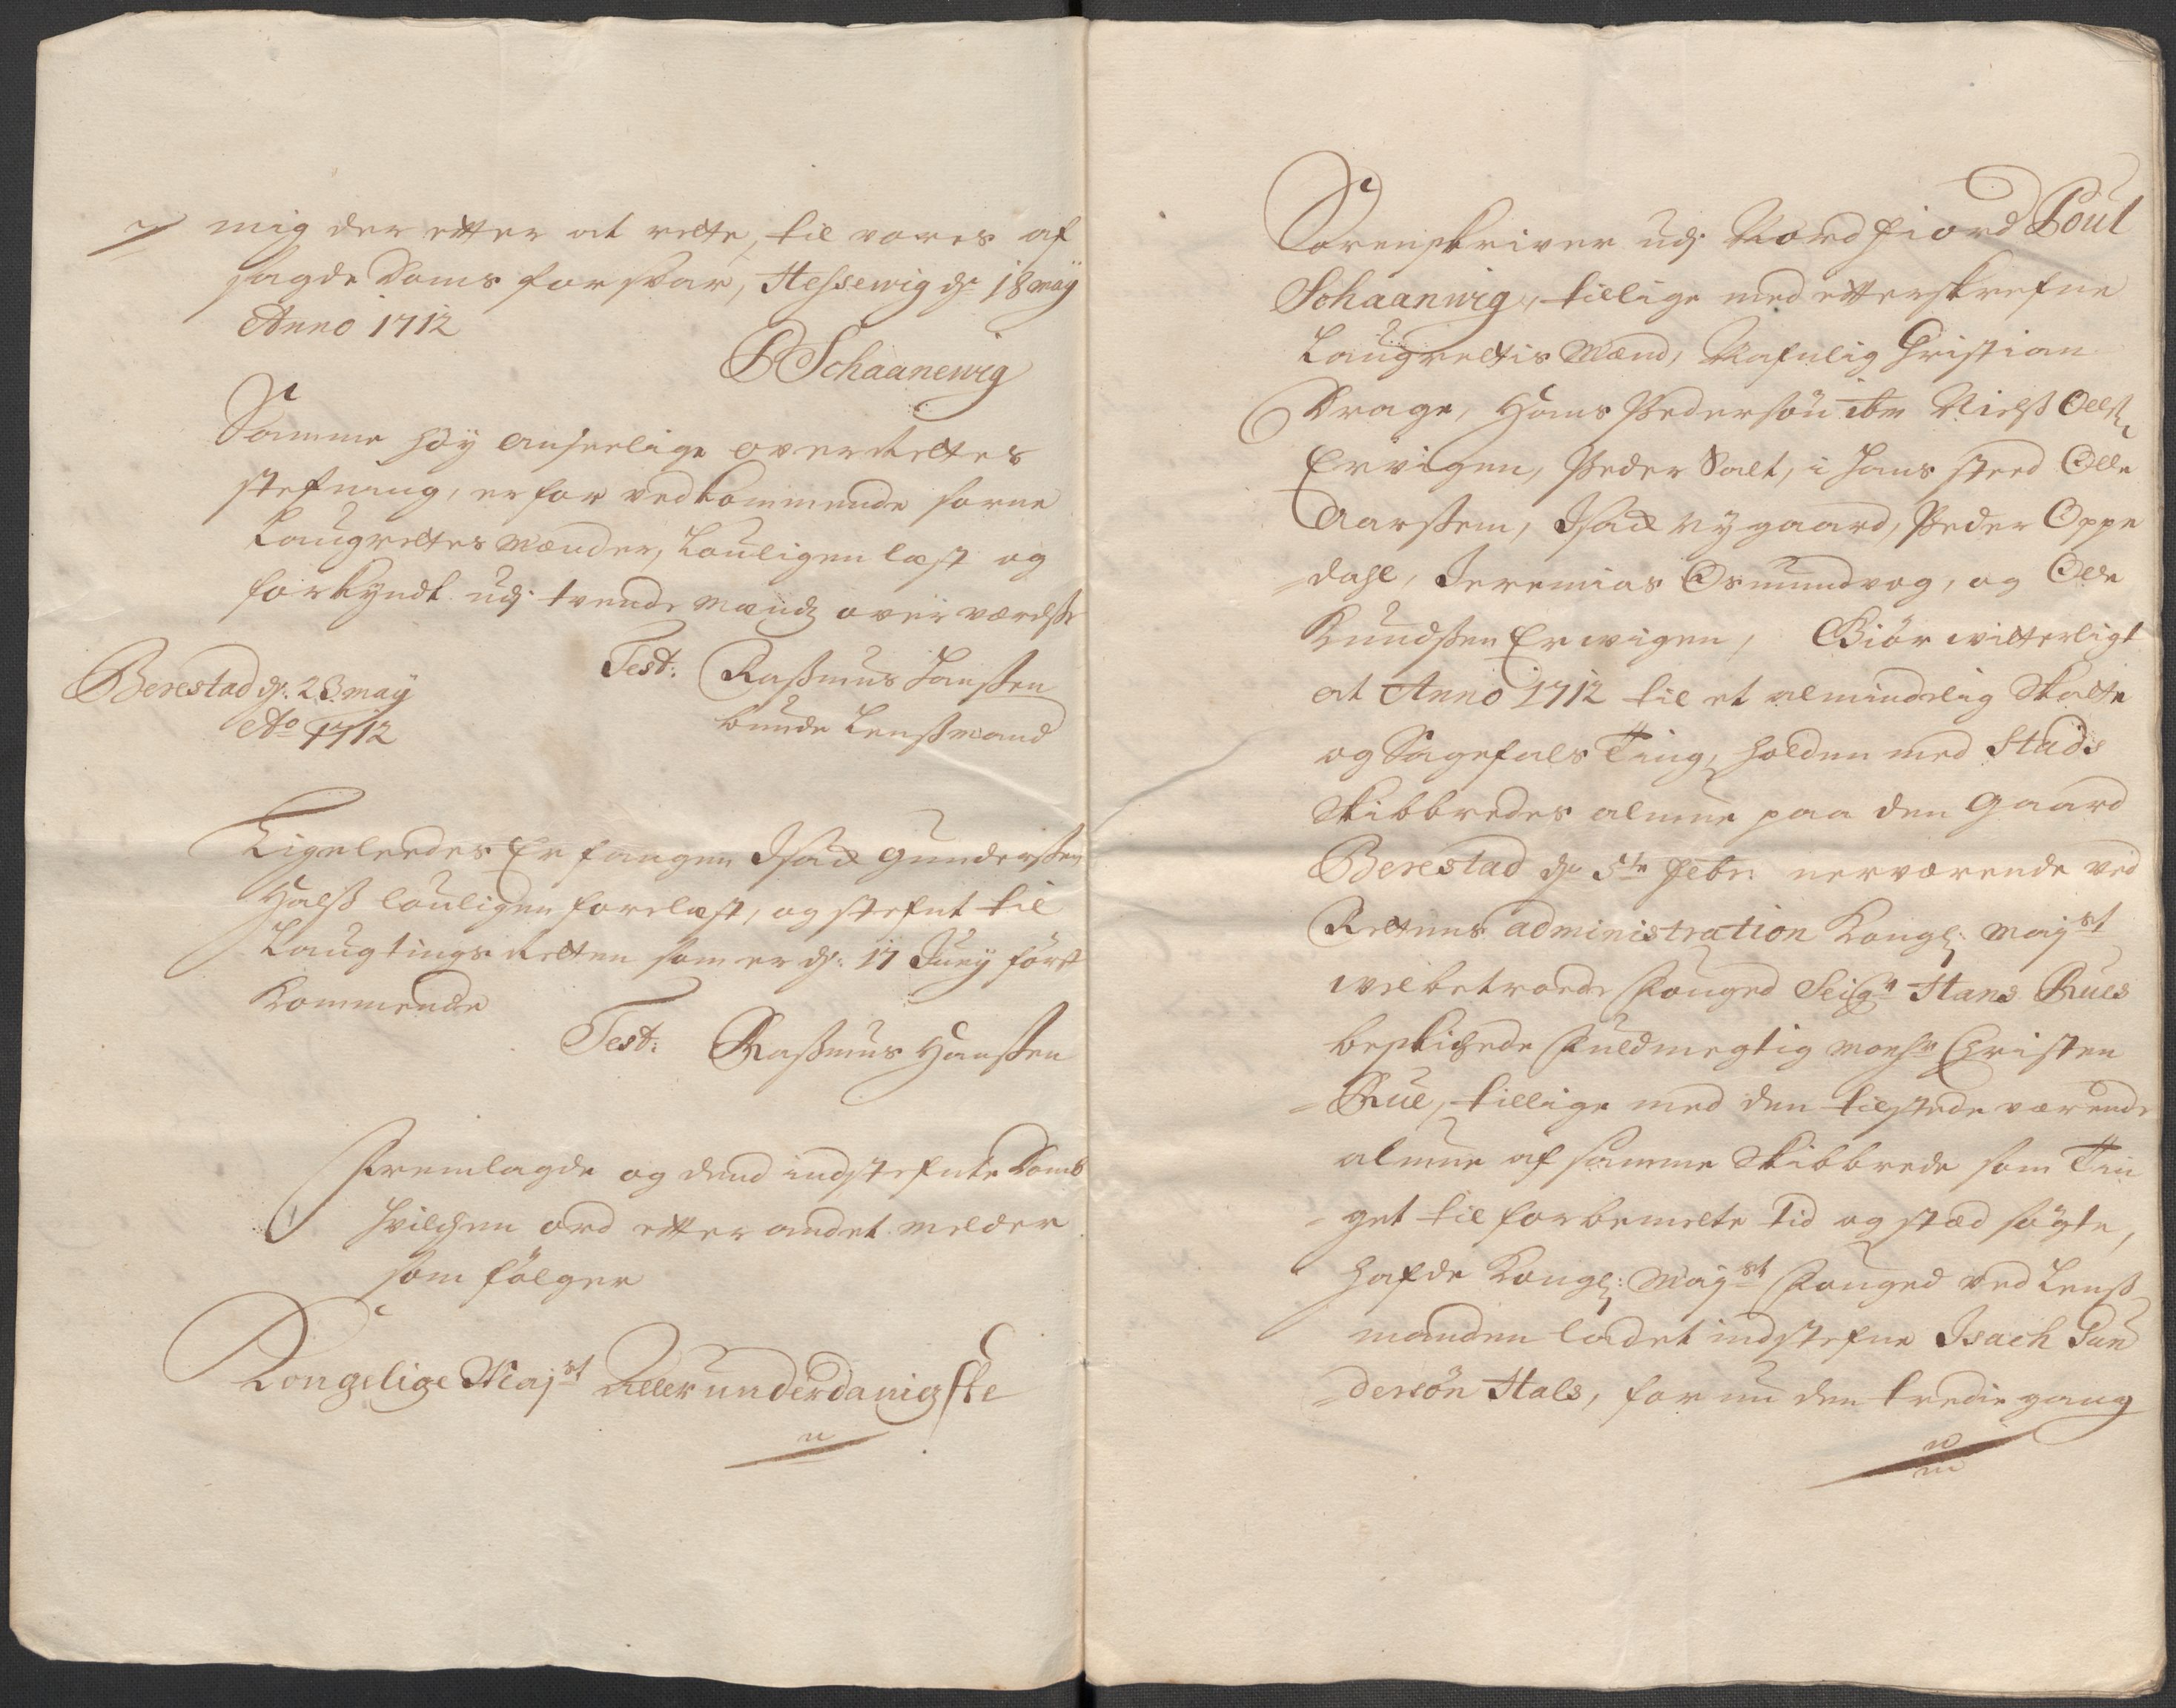 mig der etter at rette, til vores af
sagde Doms forsvar, Hessewig d: 18 maÿ
Anno 1712
P Schaanewig
Samme høÿ anseelige overRettes
stefning, er for vedkommende sorne
Laugrettes Mænder, Louligen læst og
forkÿndt udj tvende mænds overværelse
Berestad d: 23 maÿ
Ao 1712
Test: Rasmus Hanssen
bunde Lenssmand
Ligeleedes Er fangen Isach Gunderssen
Halss louligen forelæst, og stefnt til
Laugtings Retten som er d: 17 Junÿ først
kommende
Test: Rassmus Hanssen
Fremlagde og dend indstefnte Domb
hvilchen ord etter andet melder
som følger
Kongelige Majst Allerunderdanigste
Sorenskriver udj Nordfiord Poul
Schaanwig, tillige med etterskrefne
Laugrettis Mænd, Nafnlig Christian
Krage, Hans Pedersøn ibm Nielss Olss:
Ervigen, Peder Salt, i hans sted Olle
Aarssem, Isach Nÿgaard, Peder Oppe
=dahl, Jeremias Osmundvog, og Olle
Knudssen Erwigen, Giör witterligt
at Anno 1712 til et almindelig Skatte
og Sagefals Ting, holden med Stads
Skibbredes almue paa den Gaard
Berestad d: 5te Febr: nerværende ved
Rettens administration Kongl: Majst
velbetroede Fouged Seigr Hans Rues
beskichede Fuldmegtig monsr Christen
=Rue, tillige med den tilstedeværende
almue af samme Skibbrede som Tin
=get til forbemelte tid og stæd søgte,
Hafde Kongl: Majst Fouged ved Lenss
manden ladet indstefne Isach Gun
=dersön Hals, for nu den tredie gang